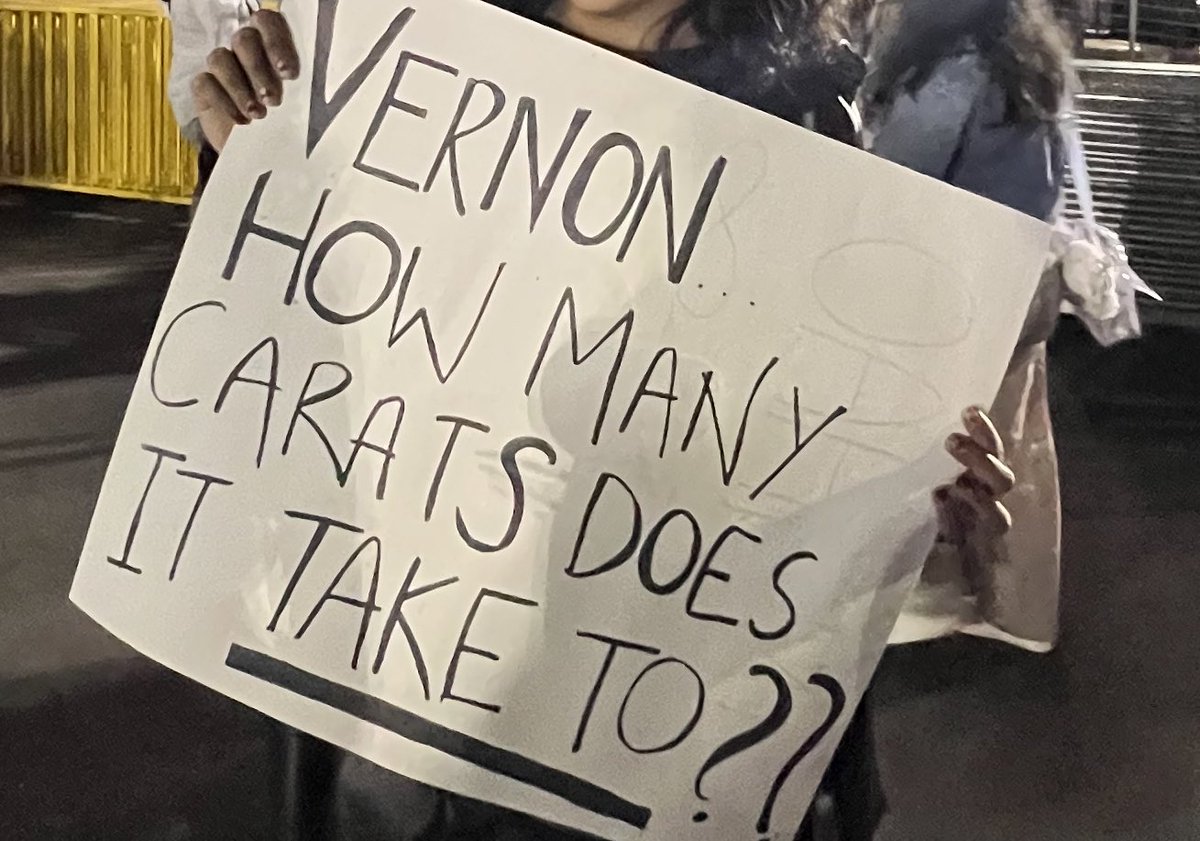 VERNON...
HOW MANY
CARATS DOES
IT TAKE TO??